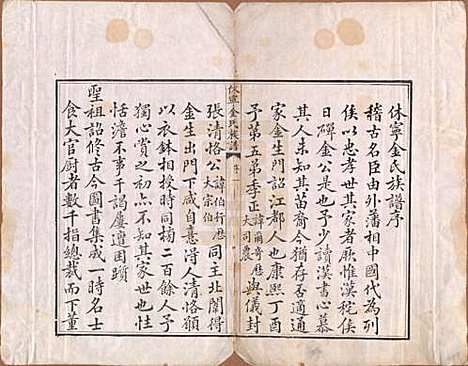 休寧金氏族譜序
稽古名臣由外藩相中國代為列
侯以忠孝世其家者厥惟漢秺侯
日磾金公是也予少讀漢書心慕
其人未知其苗裔今猶存否適通
家金生門詔江都人也康熙丁酉
予第五弟季正諱爾奇歷大司農與儀封
休寧金氏族譜 序
張清恪公諱伯行歷大宗伯同主北闈得
金生出門下咸自意得人清恪顧
以衣鉢相授時同榜二百餘人予
獨心賞之初亦不知其家世也性
恬澹不事干謁屢遭困躓
聖祖詔修古今圖書集成一時名士
食大官廚者數千指總裁而下董